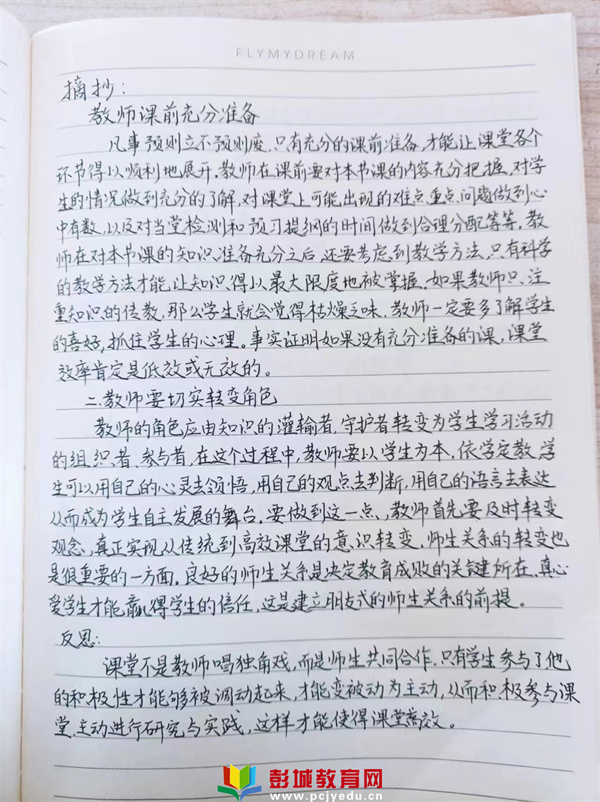 FLYMYDREAM
摘抄:
教师课前充分准备
凡事预则立不预则废.只有充分的课前准备,才能让课堂各个
环节得以顺利地展开.教师在课前要对本节课的内容充分把握,对学
生的情况做到充分的了解,对课堂上可能出现的难点、重点、问题做到心
中有数,以及对当堂检测和预习提纲的时间做到合理分配等等.教
师在对本节课的知识准备充分之后,还要考虑到教学方法.只有科学
的教学方法才能让知识得以最大限度地被掌握.如果教师只注
重知识的传教,那么学生就会觉得枯燥乏味.教师一定要多了解学生
的喜好,抓住学生的心理。事实证明如果没有充分准备的课,课堂
效率肯定是低效或无效的。
二.教师要切实转变角色
教师的角色应由知识的灌输者,守护者转变为学生学习活动
的组织者、参与者,在这个过程中,教师要以学生为本,依学定教,学
生可以用自己的心灵去领悟,用自己的观点去判断,用自己的语言去表达
从而成为学生自主发展的舞台.要做到这一点,教师首先要及时转变
观念,真正实现从传统到高效课堂的意识转变.师生关系的转变也
是很重要的一方面.良好的师生关系是决定教育成败的关键所在.真心
爱学生才能赢得学生的信任,这是建立朋友式的师生关系的前提。
反思:
课堂不是教师唱独角戏,而是师生共同合作.只有学生参与了他
的积极性才能够被调动起来,才能变被动为主动,从而积极参与课
堂.主动进行研究与实践,这样才能使得课堂高效。
彭城教育网
www.pcjyedu.cn